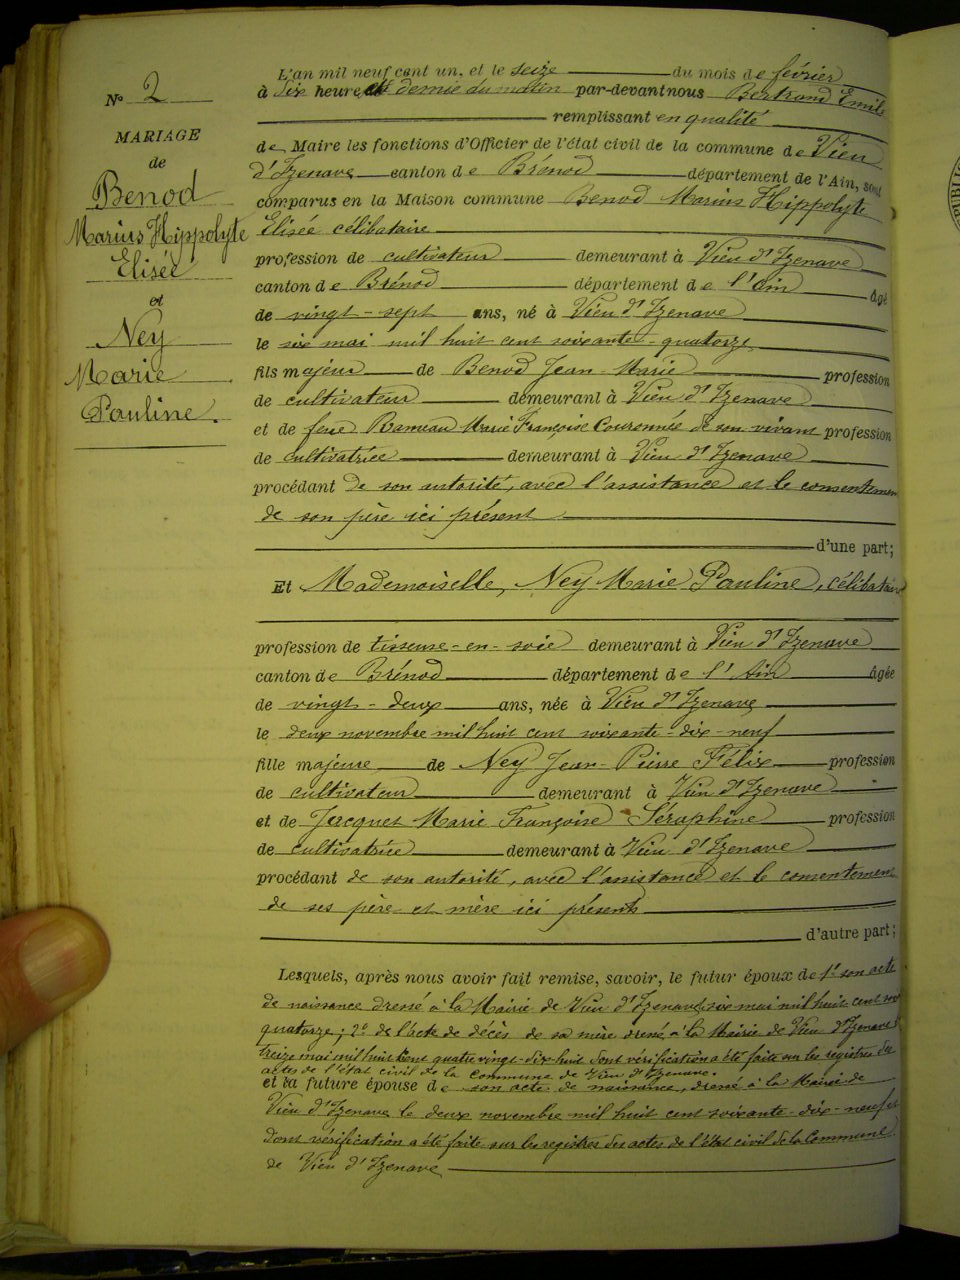 N° 2
MARIAGE
de
Benod
Marius Hippolyte
Elisée
et
Ney
Marie
Pauline.
L'an mil neuf cent un, et le seize du mois de février
à dix heures et demie du matin par-devant nous Bertrand Emile
remplissant en qualité
de Maire les fonctions d'Officier de l'état civil de la commune de Vieu
d'Izenave canton de Brénod département de l'Ain, sont
comparus en la Maison commune Benod Marius Hippolyte
Elisée célibataire
profession de cultivateur demeurant à Vieu d'Izenave
canton de Brénod département de l'Ain âgé
de vingt-sept ans, né à Vieu d'Izenave
le six mai mil huit cent soixante-quatorze
fils majeur de Benod Jean-Marie profession
de cultivateur demeurant à Vieu d'Izenave
et de feue Rameau Marie Françoise Couronnée de son vivant profession
de cultivatrice demeurant à Vieu d'Izenave
procédant de son autorité, avec l'assistance et le consentement
de son père ici présent
d'une part;
Et Mademoiselle, Ney Marie Pauline, célibataire
profession de tisseuse-en-soie demeurant à Vieu d'Izenave
canton de Brénod département de l'Ain âgée
de vingt-deux ans, née à Vieu d'Izenave
le deux novembre mil huit cent soixante-dix-neuf
fille majeure de Ney Jean-Pierre Félix profession
de cultivateur demeurant à Vieu d'Izenave
et de Jacquet Marie Françoise Séraphine profession
de cultivatrice demeurant à Vieu d'Izenave
procédant de son autorité, avec l'assistance et le consentement
de ses père et mère ici présents
d'autre part;
Lesquels, après nous avoir fait remise, savoir, le futur époux de 1° son acte
de naissance dressé à la Mairie de Vieu d'Izenave six mai mil huit cent soix
quatorze; 2° de l'acte de décès de sa mère dressé à la Mairie de Vieu d'Izenave
treize mai mil huit cent quatre vingt-dix-huit dont vérification a été faite sur les registres des
actes de l'état civil de la commune de Vieu d'Izenave.
et la future épouse de son acte de naissance, dressé à la Mairie de
Vieu d'Izenave le deux novembre mil huit cent soixante-dix-neuf et
dont vérification a été faite sur les registres des actes de l'état civil de la Commune
de Vieu d'Izenave